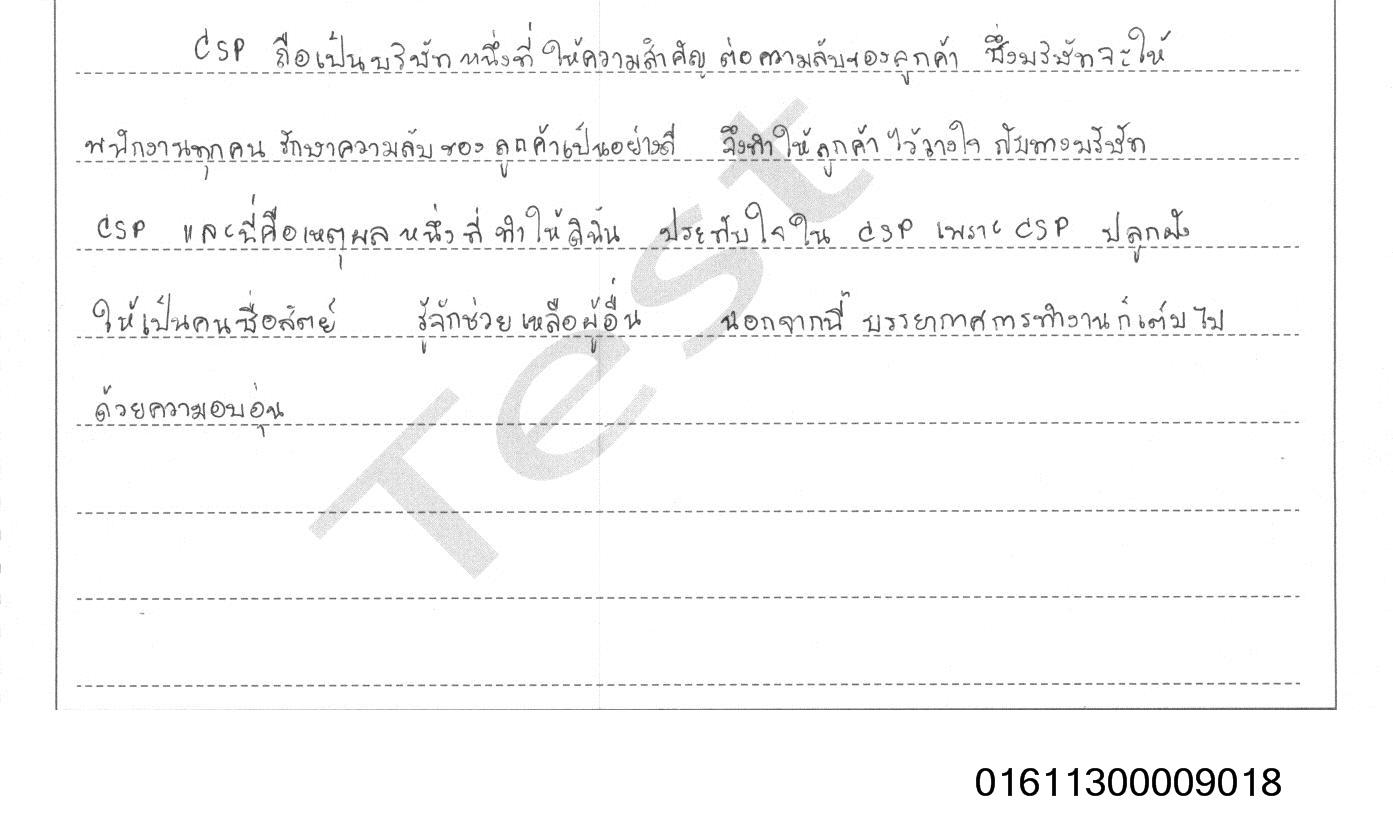 CSP ถือเป็นบริษัทหนึ่งที่ให้ความสำคัญต่อความลับของลูกค้า ซึ่งบริษัทจะให้
พนักงานทุกคนรักษาความลับของลูกค้าเป็นอย่างดี จึงทำให้ลูกค้าไว้วางใจกับทางบริษัท
CSP และนี่คือเหตุผลหนึ่งที่ทำให้ดิฉัน ประทับใจใน CSP เพราะ CSP ปลูกฝัง
ให้เป็นคนซื่อสัตย์ รู้จักช่วยเหลือผู้อื่น นอกจากนี้ บรรยากาศการทำงานก็เต็มไป
ด้วยความอบอุ่น
Test
01611300009018